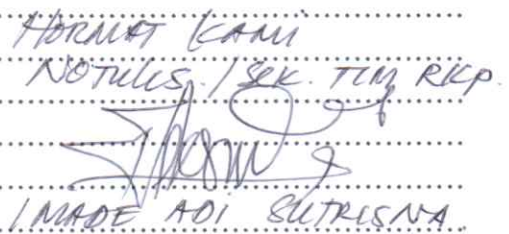 HORMAT KAMI
NOTULIS / SEK. TIM RKP.
I MADE ADI SUTRISNA